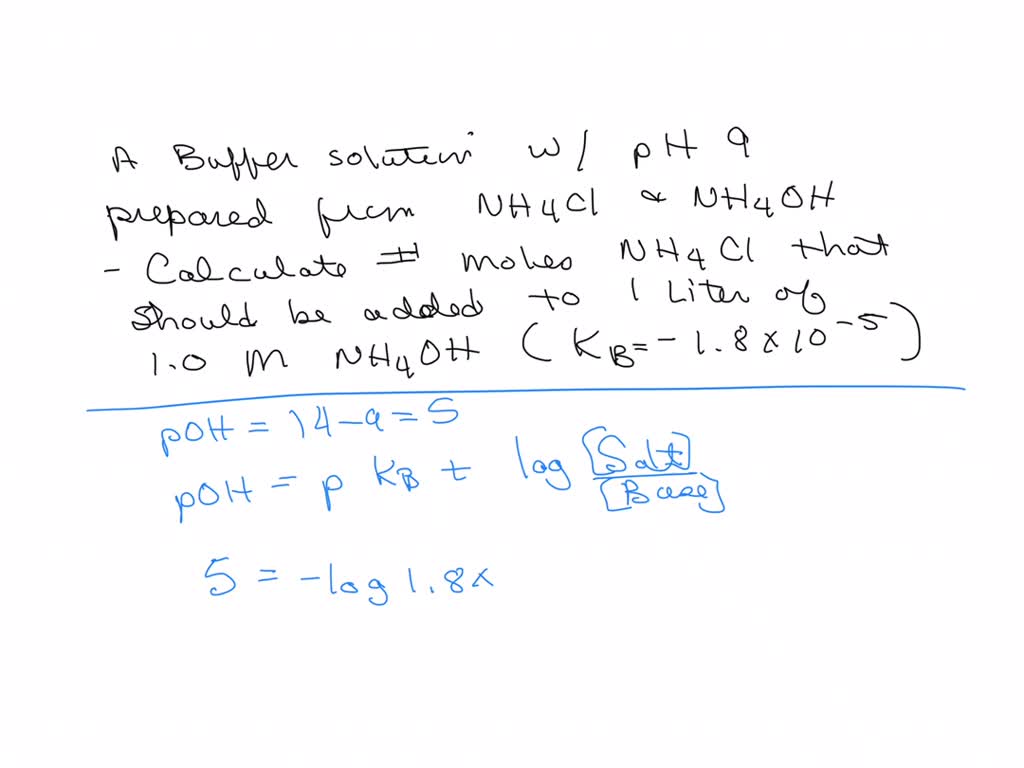 A Buffer solution w/ pH 9
prepared from NH4Cl & NH4OH
- Calculate # moles NH4Cl that
should be added to 1 Liter of
1.0 M NH4OH (KB=- 1.8x10-5)
pOH = 14-9=5
pOH = p KB + log [Salt]/[Base]
5 = -log 1.8x